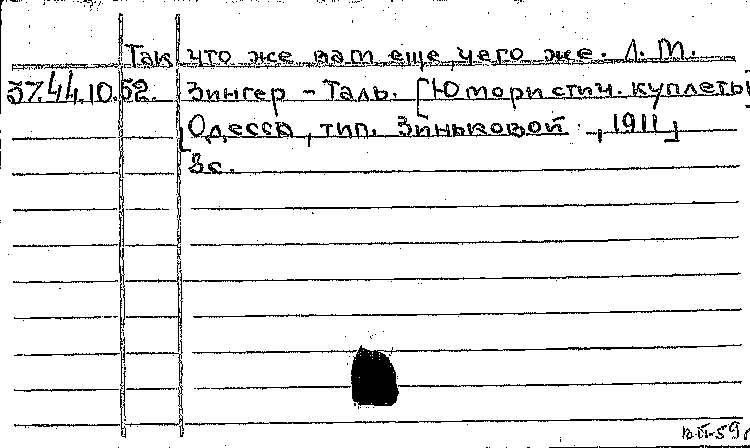 Так что же вам еще, чего же. Л. М.
37.44.10.52. Зингер - Таль. [Юмористич. куплеты
[Одесса, тип. Зиньковой -, 1911]
3с.